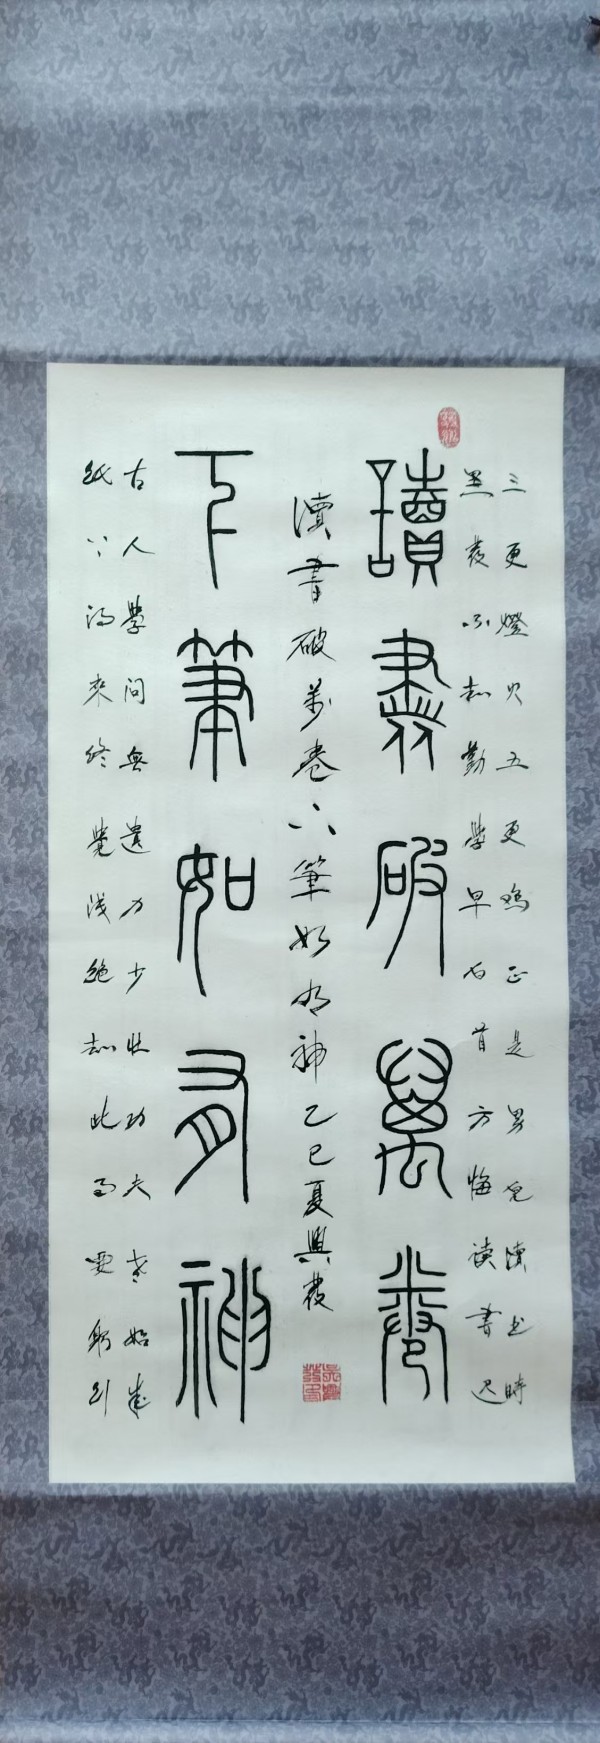 三更燈火五更鸡正是男兒讀书時
黑發不知勤學早白首方悔读書迟
讀書破萬卷
讀書破萬卷下筆如有神乙巳夏興發
下筆如有神
古人學問無遺力少壯功夫老始成
紙上得來終覺浅絶知此事要躬行